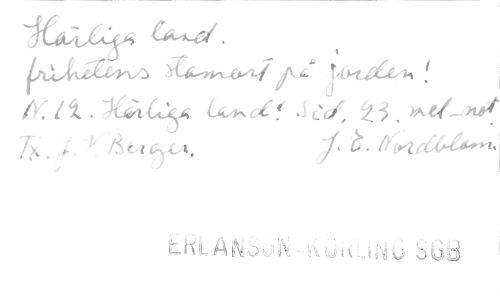 Härliga land.
frihetens stamort på jorden!
N. 12. Härliga land! Sid. 23. mel-not.
Tx. f. V. Berger. J. E. Nordblom.
ERLANSON-KÖRLING SGB